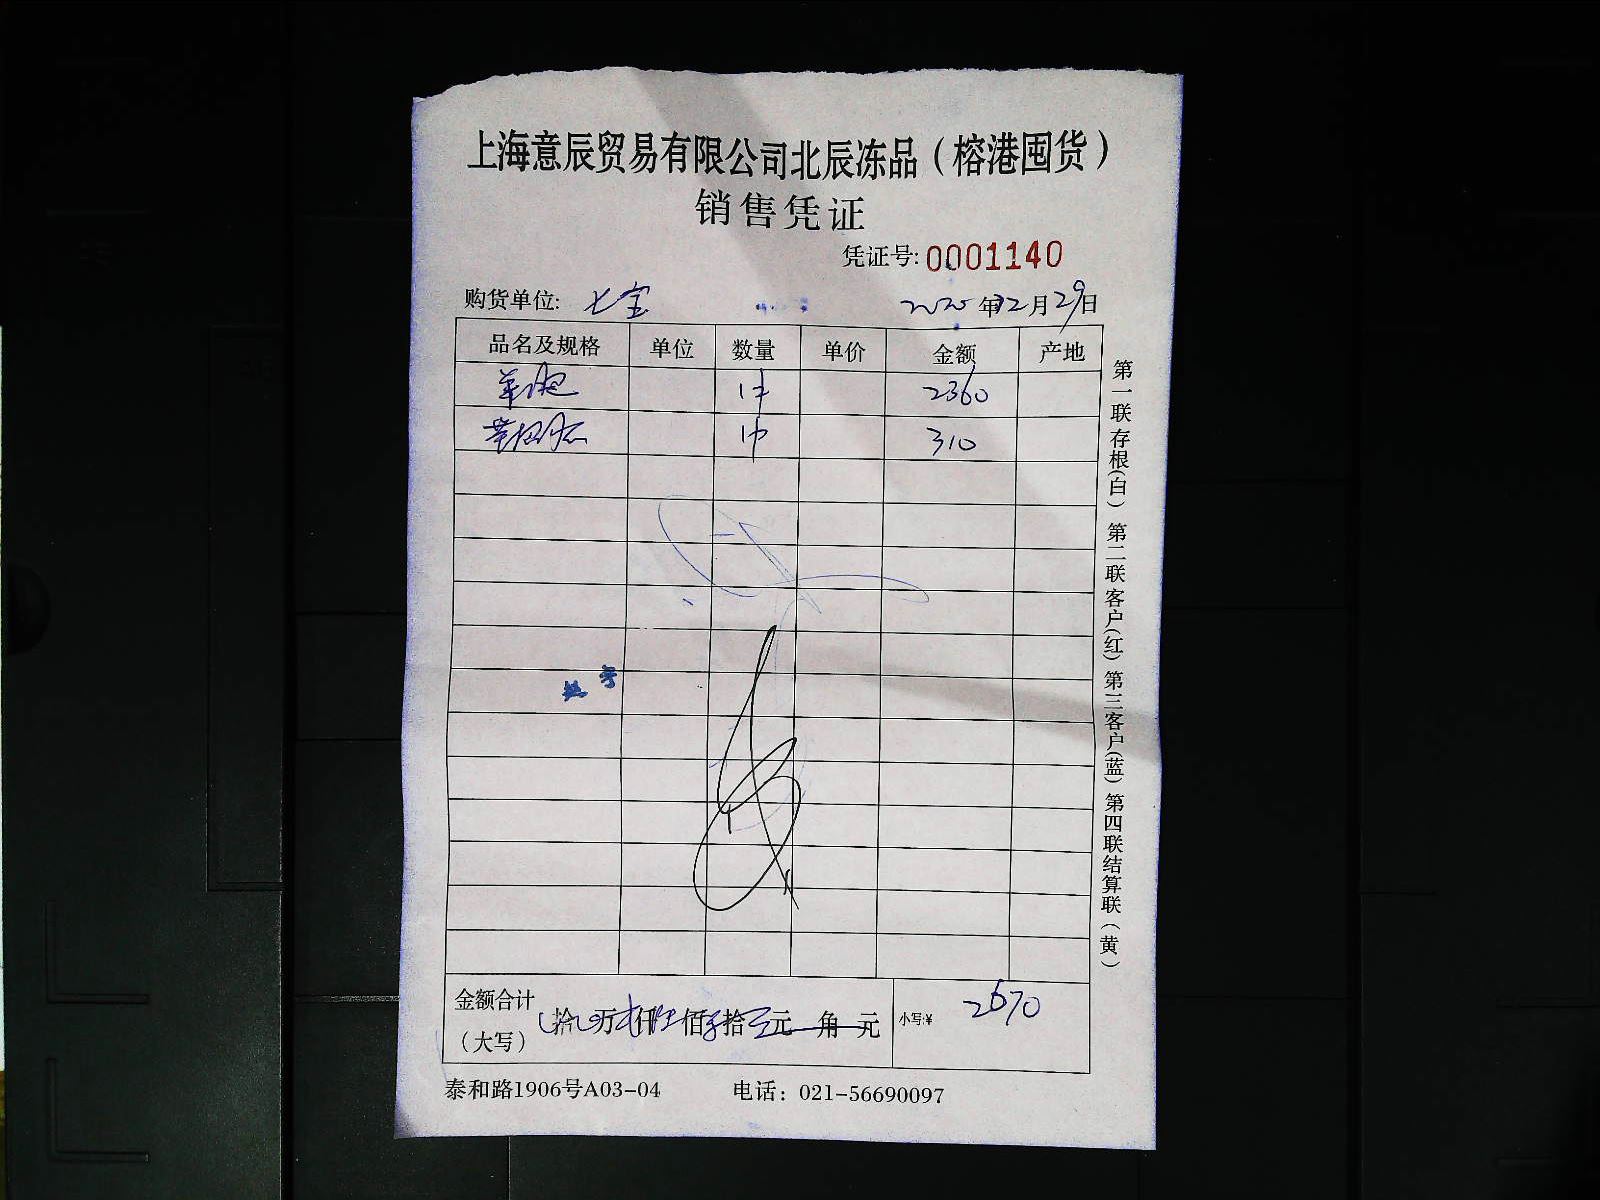 上海意辰贸易有限公司北辰冻品（榕港囤货）
销售凭证
凭证号:0001140
购货单位: 七宝 2020年12月29日
品名及规格 单位 数量 单价 金额 产地
1件 2360
1件 310
金额合计
（大写） 拾 万 仟 佰 拾 元 角 元 小写:¥ 2670
泰和路1906号A03-04 电话：021-56690097
第一联存根(白) 第二联客户(红) 第三客户(蓝) 第四联结算联（黄）